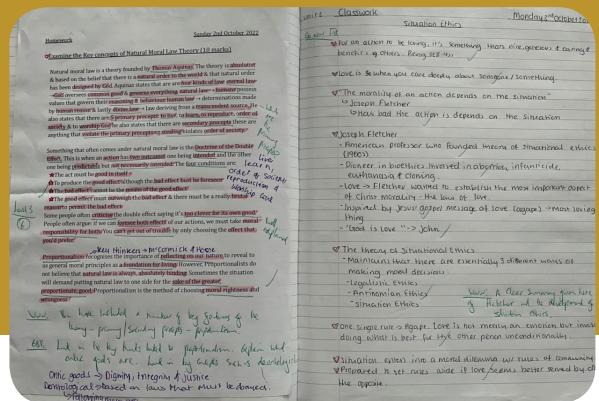 Homework
Sunday 2nd October 2022
Examine the Key concepts of Natural Moral Law Theory (10 marks)
Natural moral law is a theory founded by Thomas Aquinas. The theory is absolutist
& based on the belief that there is a natural order to the world & that natural order
has been designed by God. Aquinas states that are are four kinds of law eternal law
values that govern their reasoning & behaviour human law → determinations made
by human reason & lastly divine law → law deriving from a transcendent source. He
also states that there are 5 primary precepts to live, to learn, to reproduce, order of
society & to worship God he also states that there are secondary precepts these are
anything that violate the primary precepts; stealing violates order of society.
live
learn,
order of society
reproduction &
worship God
Something that often comes under natural moral law is the Doctrine of the Double
Effect. This is when an action has two outcomes one being intended and the other
one being predictable but not necessarily intended. The four conditions are:
The act must be good in itself
To produce the good effect though the bad effect must be foreseen
The bad effect cannot be the means of the good effect
The good effect must outweigh the bad effect & there must be a really
reason to permit the bad effect
Some people often criticise the double effect saying it's too clever for its own good.
People often argue if we can foresee both effects of our actions, we must take moral
responsibility for both. You can't get out of trouble by only choosing the effect that
you'd prefer
Level 3
6
key thinkers → McCormick & Hoose
Proportionalism recognises the importance of reflecting on our nature to reveal to
us general moral principles as a foundation for living. However, Proportionalists do
not believe that natural law is always, absolutely binding. Sometimes the situation
will demand putting natural law to one side for the sake of the greater
proportionate good. Proportionalism is the method of choosing moral rightness and
wrongness
WWW: You have included a number of key features of the
theory - primary / secondary precepts - proportionalism.
EBI: Link in the key
Ontic goods → Dignity, integrity & justice
Deontological → based on laws that must be obeyed.
Classwork
Monday 3rd October 2022
Situation Ethics
For an action to be loving, it's something thats nice, generous & caring &
benefits others. Being selfless
Love is when you care deeply about someone / something.
"The morality of an action depends on the situation"
↳ Joseph Fletcher
↳ How bad the action is depends on the situation
Joseph Fletcher
- American professor who founded theory of situational ethics
(1960s)
- Pioneer in bioethics. Involved in abortion, infanticide,
euthanasia & cloning.
- Love → Fletcher wanted to establish the most important aspect
of Christ morality - the law of love.
- Inspired by Jesus' gospel message of love (agape) → Most loving
thing
- "God is Love" → John
The theory of Situational Ethics
- Maintains that there are essentially 3 different ways of
making moral decisions.
- Legalistic Ethics
- Antinomian Ethics
- Situation Ethics
WWW: A clear summary given here
of Fletcher and the development of
situation ethics.
One single rule → Agape. Love is not merely an emotion but involves
doing what is best for the other person unconditionally.
Situation enters into a moral dilemma w/ rules of community
Prepared to set rules aside if love seems better served by
the opposite.